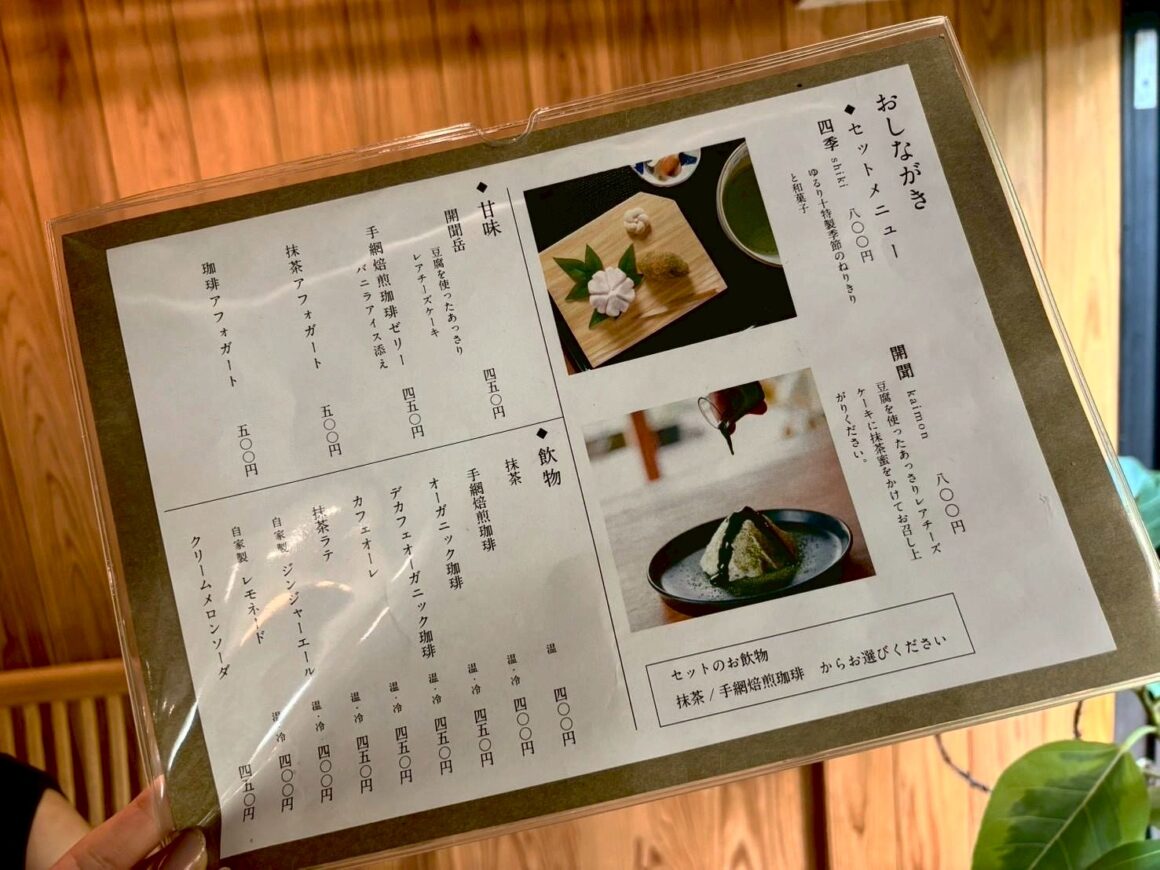 おしながき
◆セットメニュー
四季 shiki 八〇〇円
ゆるり十特製季節のねりきり
と和菓子
開聞 kaimon 八〇〇円
豆腐を使ったあっさりレアチーズ
ケーキに抹茶蜜をかけてお召し上
がりください。
セットのお飲物
抹茶/手網焙煎珈琲 からお選びください
◆甘味
開聞岳 四五〇円
豆腐を使ったあっさり
レアチーズケーキ
手網焙煎珈琲ゼリー 四五〇円
バニラアイス添え
抹茶アフォガート 五〇〇円
珈琲アフォガート 五〇〇円
◆飲物
抹茶 温 四〇〇円
手網焙煎珈琲 温・冷 四〇〇円
オーガニック珈琲 温・冷 四五〇円
デカフェオーガニック珈琲 温・冷 四五〇円
カフェオーレ 温・冷 四五〇円
抹茶ラテ 温・冷 四五〇円
自家製 ジンジャーエール 温・冷 四〇〇円
自家製 レモネード 温・冷 四〇〇円
クリームメロンソーダ 四五〇円